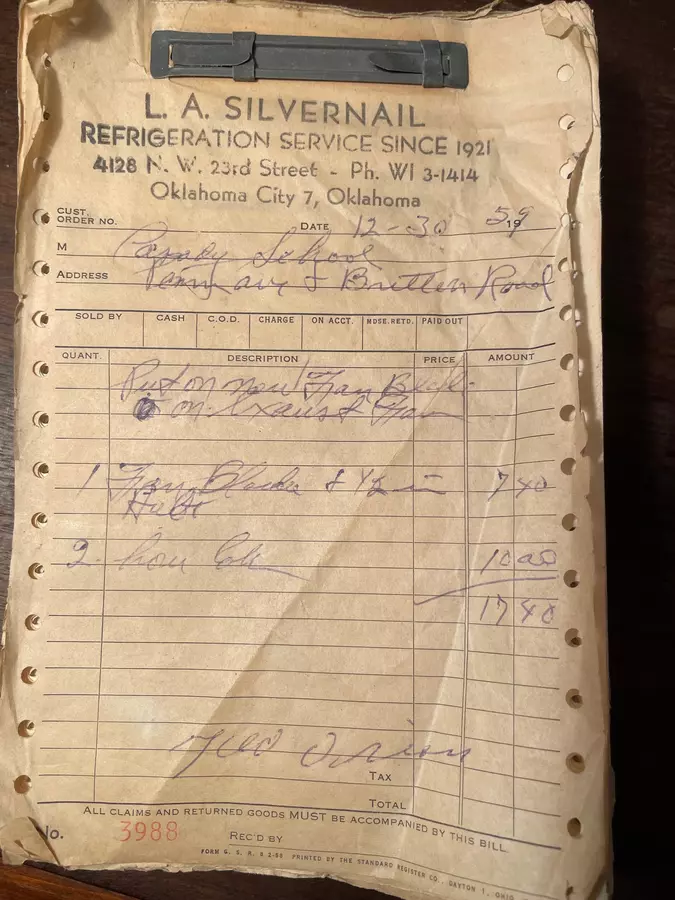 L. A. SILVERNAIL
REFRIGERATION SERVICE SINCE 1921
4128 N. W. 23rd Street - Ph. WI 3-1414
Oklahoma City 7, Oklahoma
CUST. ORDER NO. DATE 12-30 1959
M School
ADDRESS ave & Britton Road
SOLD BY CASH C.O.D. CHARGE ON ACCT. MDSE. RETD. PAID OUT
QUANT. DESCRIPTION PRICE AMOUNT
Put on new Fan Blade
on Exaust Fan
1 Fan Blade & 1/2 in 7 40
2 hour 10 00
17 40
TAX
TOTAL
ALL CLAIMS AND RETURNED GOODS MUST BE ACCOMPANIED BY THIS BILL
No. 3988 REC'D BY
FORM G. S. R. PRINTED BY THE STANDARD REGISTER CO., DAYTON 1, OHIO